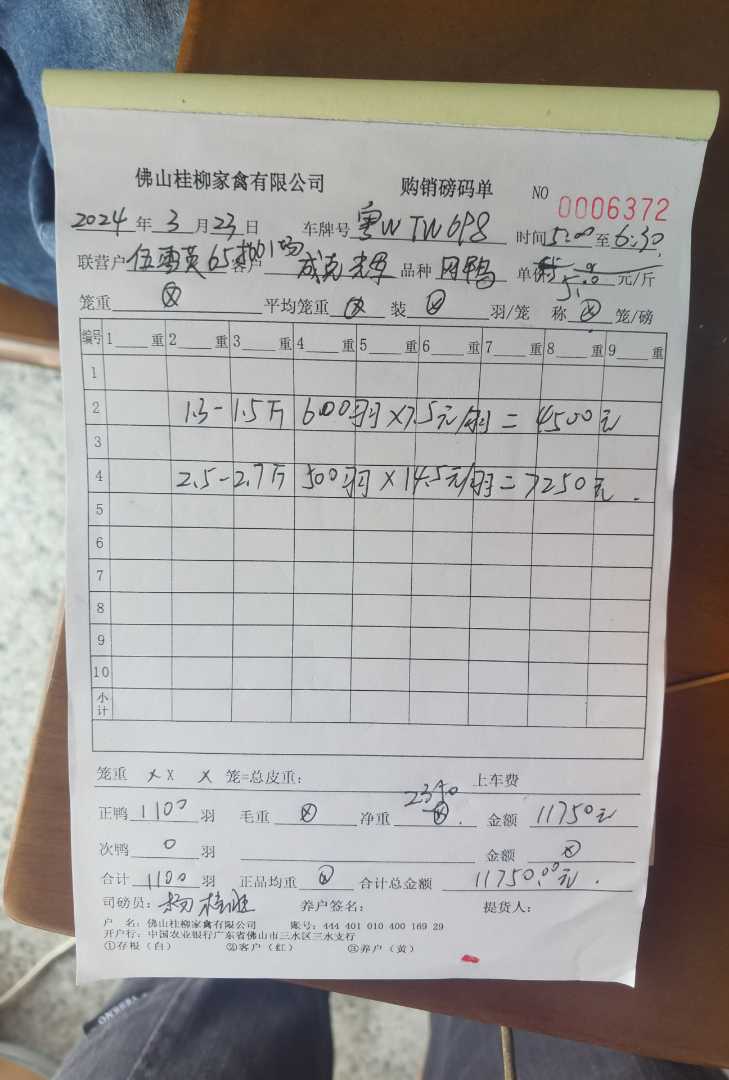 佛山桂柳家禽有限公司 购销磅码单 NO 0006372
2024年3月23日 车牌号 粤W TW698 时间5:00至6:30
联营户 伍雪英65 客户 成克辉 品种 肉鸭 单价 5.0 元/斤
笼重 ⊗ 平均笼重 ⊗ 装 ⊗ 羽/笼 称 ⊗ 笼/磅
编号 1 重 2 重 3 重 4 重 5 重 6 重 7 重 8 重 9 重
1
2 1.3-1.5斤 600羽×7.5元/羽=4500元
3
4 2.5-2.7斤 500羽×14.5元/羽=7250元.
5
6
7
8
9
10
小计
笼重 × × × 笼=总皮重: 上车费
正鸭 1100 羽 毛重 ⊗ 净重 ⊗ 金额 11750元
次鸭 0 羽 金额 ⊗
合计 1100 羽 正品均重 ⊗ 合计总金额 11750.00元.
司磅员: 养户签名: 提货人:
户 名: 佛山桂柳家禽有限公司 账号: 444 401 010 400 169 29
开户行: 中国农业银行广东省佛山市三水区三水支行
①存根（白） ②客户（红） ③养户（黄）